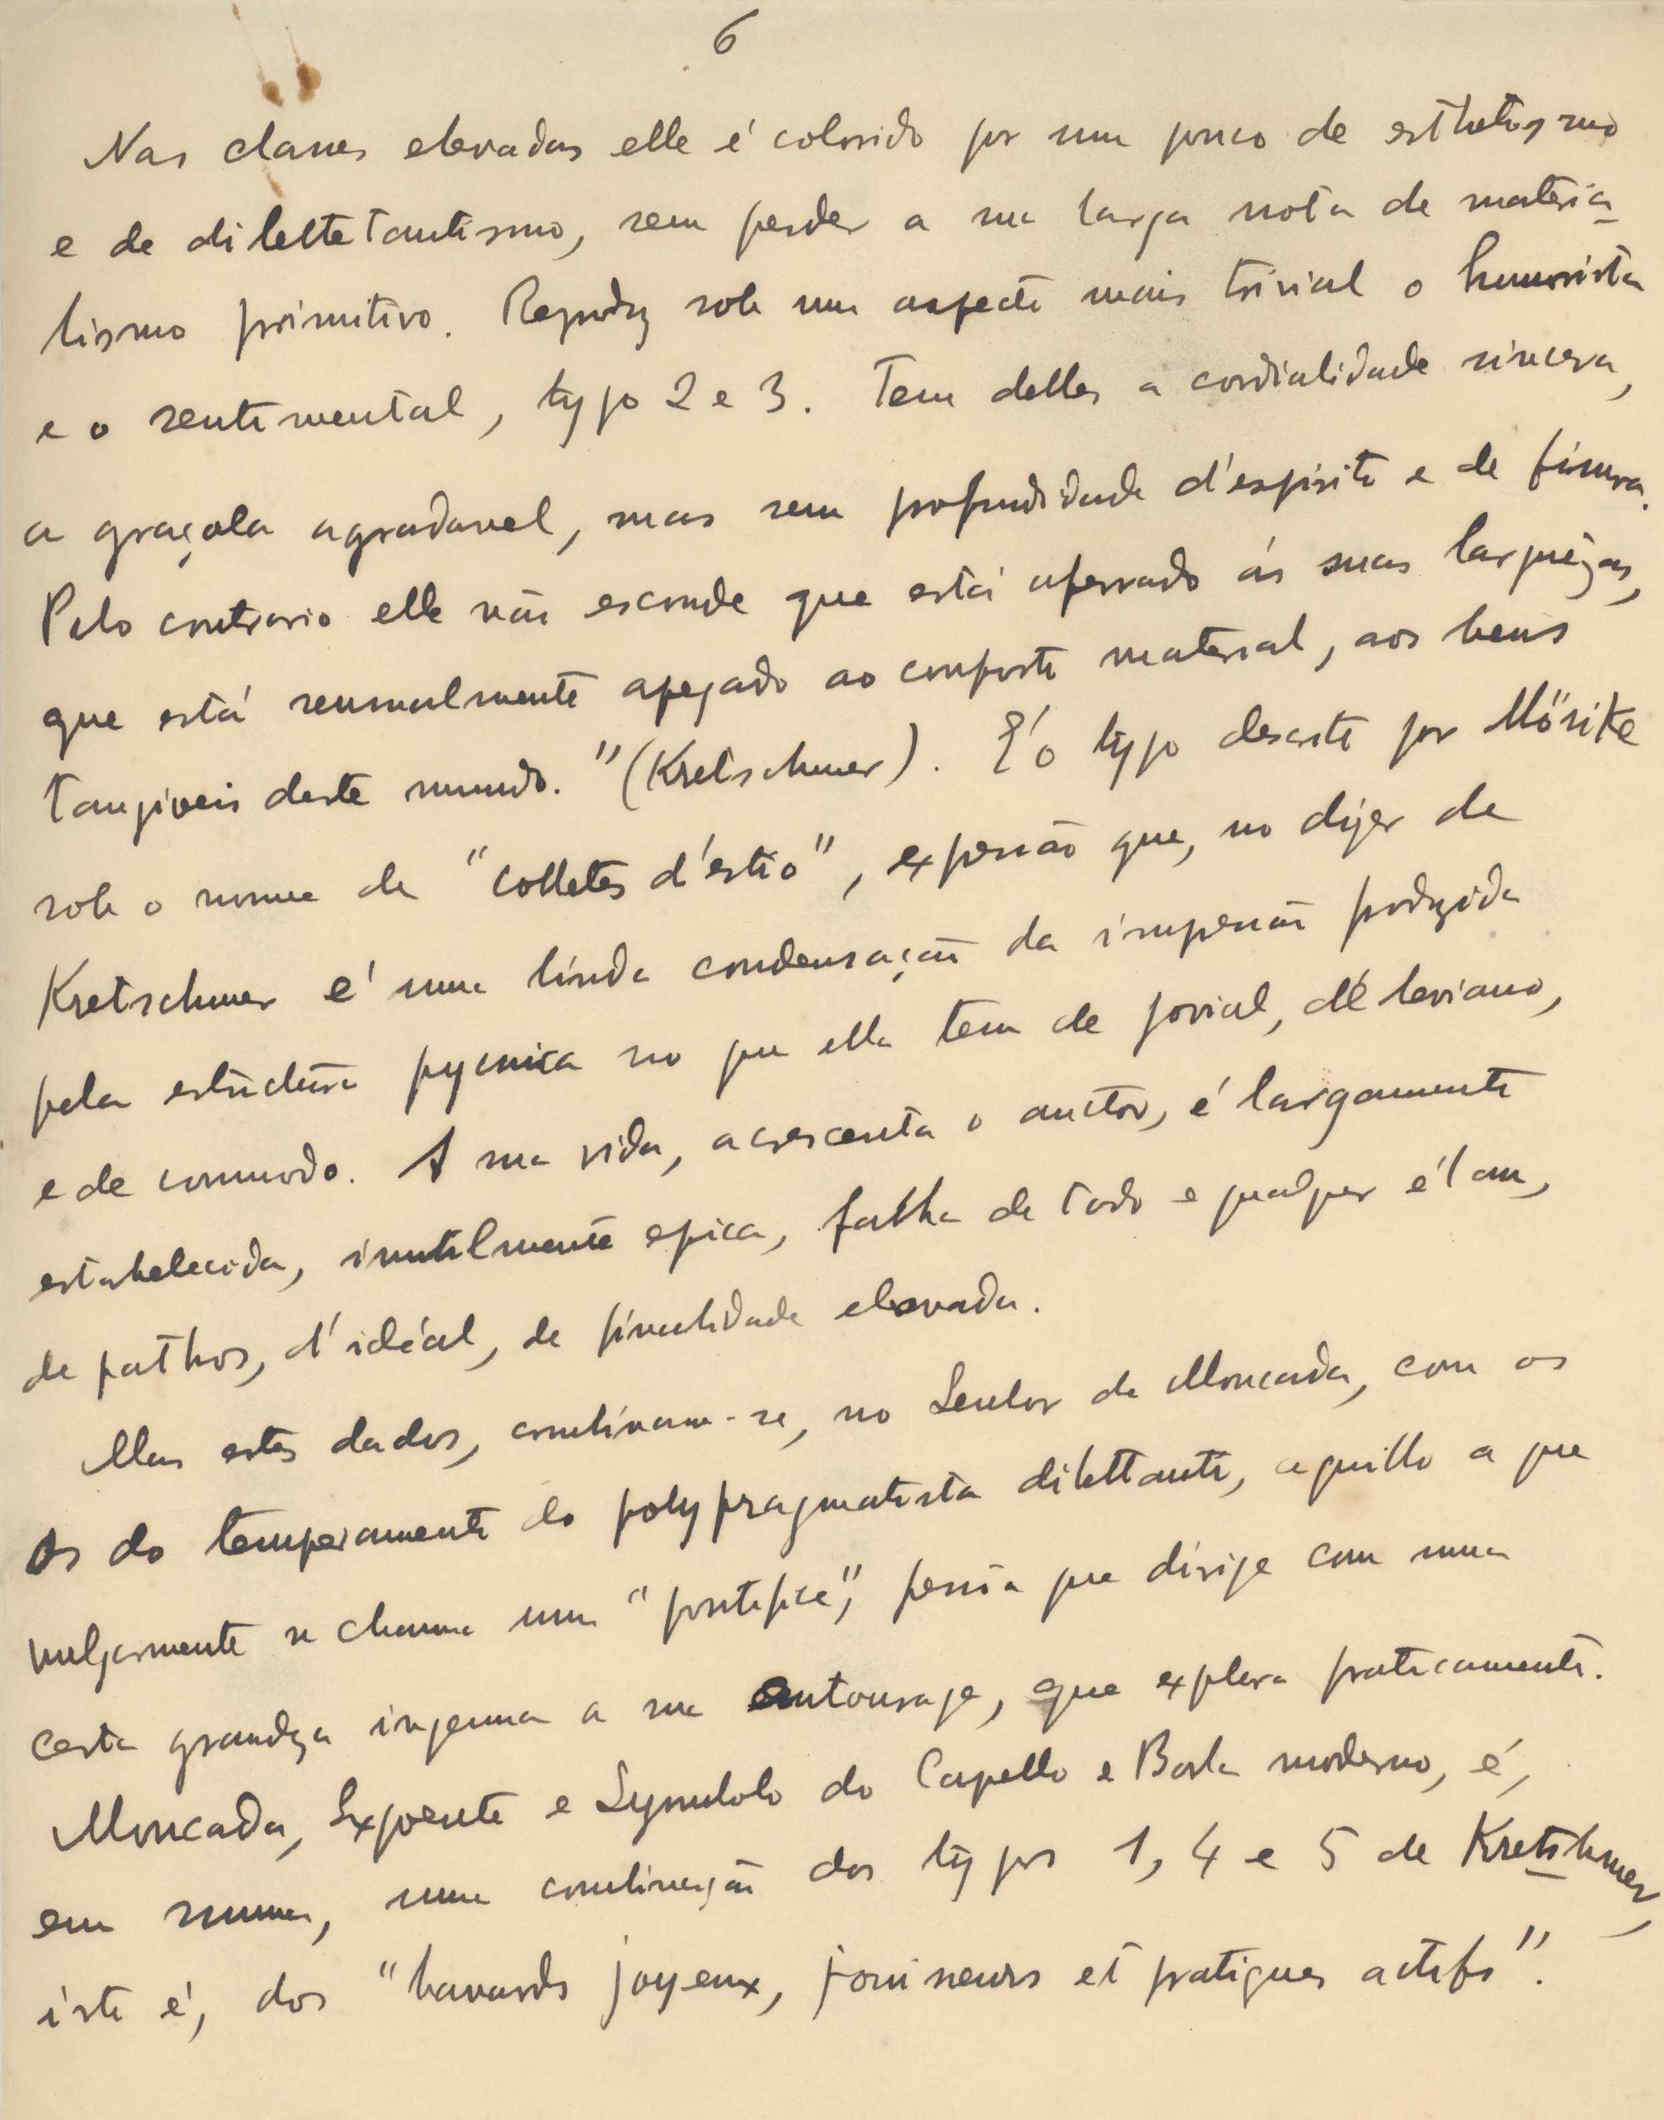 6
Nas classes elevadas elle é colorido por um pouco de esthetismo
e de dilettetantismo, sem perder a sua larga nota de materia-
lismo primitivo. Reproduz sob um aspecto mais trivial o humorista
e o sentimental, typo 2 e 3. Tem delles a cordialidade sincera,
a graçola agradavel, mas sem profundidade d'espirito e de finura.
Pelo contrario elle não esconde que está aferrado ás suas larguêzas,
que está sensualmente apegado ao conforto material, aos bens
tangiveis deste mundo." (Kretschmer). É o typo descrito por Mörike
sob o nome de "colletes d'estio", expressão que, no dizer de
Kretschmer é uma linda condensação da impressão produzida
pela estructura pycnica no que ella tem de jovial, de leviano,
e de commodo. A sua vida, acrescenta o auctor, é largamente
estabelecida, inutilmente epica, falha de todo e qualquer élan,
de pathos, d'idéal, de finalidade elevada.
Mas estes dados, combinam-se, no Senhor de Moncada, com os
os do temperamento do polypragmatista dilettante, aquillo a que
vulgarmente se chama um "pontifice", pessôa que dirige com uma
certa grandeza ingenua a sua entourage, que explora praticamente.
Moncada, Expoente e Symbolo do Capello e Borla moderno, é,
em summa, uma combinação dos typos 1, 4 e 5 de Kretshmer,
isto é, dos "bavards joyeux, jouisseurs et pratiques actifs".